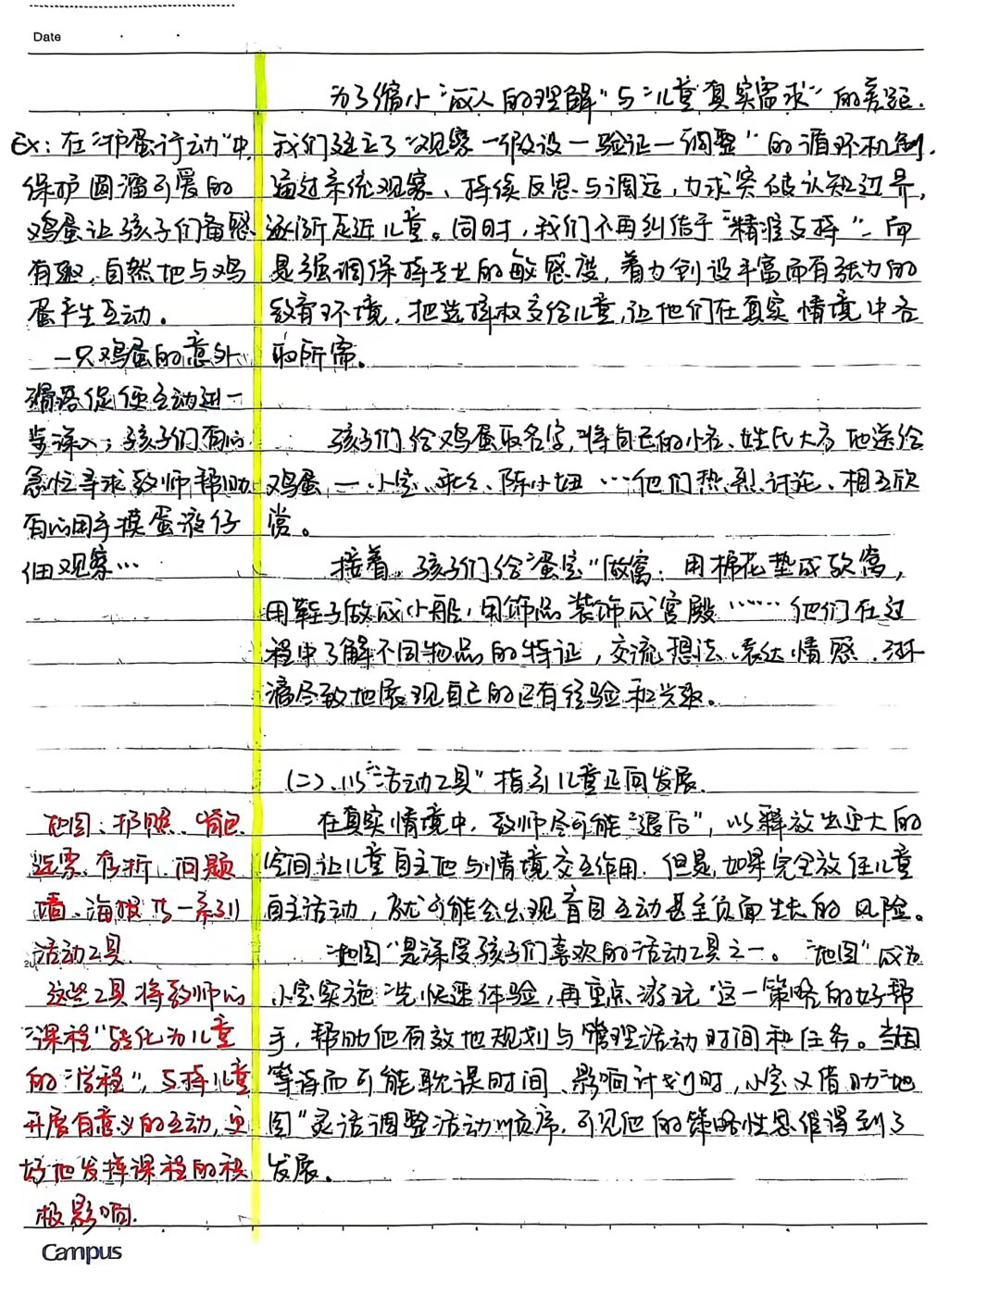 Date
为了缩小“成人的理解”与“儿童真实需求”的差距，
我们建立了“观察—假设—验证—调整”的循环机制，
通过系统观察、持续反思与调适，力求突破认知边界，
逐渐走近儿童。同时，我们不再纠结于“精准支持”，而
是强调保持专业的敏感度，着力创设丰富而有张力的
教育环境，把选择权交给儿童，让他们在真实情境中各
取所需。
孩子们给鸡蛋取名字，将自己的小名、姓氏大方地送给
鸡蛋，—小宝、乖乖、陈小妞……他们热烈讨论、相互欣
赏。
接着，孩子们给“蛋宝”做窝：用棉花垫成软窝，
用鞋子做成小船，用饰品装饰成宫殿……他们在过
程中了解不同物品的特征，交流想法、表达情感，淋
漓尽致地展现自己的已有经验和兴趣。
(二)、以“活动工具”指引儿童正向发展.
在真实情境中，教师尽可能“退后”，以释放出更大的
空间让儿童自主地与情境交互作用。但是，如果完全放任儿童
自主活动，就可能会出现盲目互动甚至负面生长的风险。
“地图”是深度孩子们喜欢的活动工具之一。“地图”成为
小宝实施“先快速体验，再重点游玩”这一策略的好帮
手，帮助他有效地规划与管理活动时间和任务。当因
等待而可能耽误时间、影响计划时，小宝又借助“地
图”灵活调整活动顺序，可见他的策略性思维得到了
发展。
Ex：在“护蛋行动”中，
保护圆溜可爱的
鸡蛋让孩子们备感
有趣，自然地与鸡
蛋产生互动。
一只鸡蛋的意外
滑落促使互动进一
步深入；孩子们有的
急忙寻求教师帮助，
有的用手摸蛋液仔
细观察…
地图、护照、背包
问题
墙、海报等一系列
活动工具
这些工具将教师的
“课程”转化为儿童
的“学程”，支持儿童
开展有意义的互动，更
好地发挥课程的积
极影响.
Campus